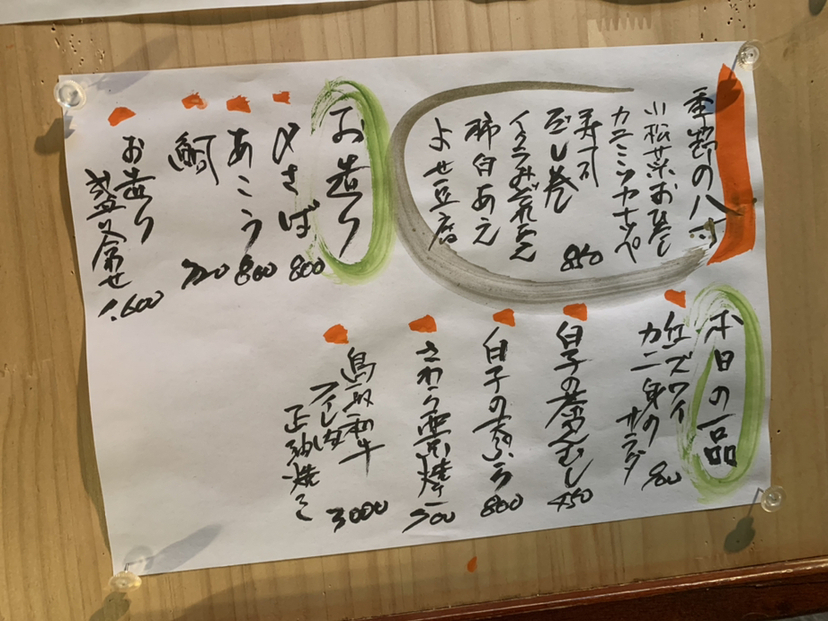 季節の八寸
小松菜おひたし
カニミソカナッペ
寿司
だし巻
イクラみぞれあえ
柿白あえ
よせ豆腐
850
お造り
〆さば 800
あこう 800
鯛 720
お造り
盛り合せ 1.600
本日の一品
紅ズワイ
カニ身の
サラダ
白子の茶わんむし 450
白子の天ぷら 800
さわら西京焼き
鳥取和牛
フィレ肉
正油焼き 3000